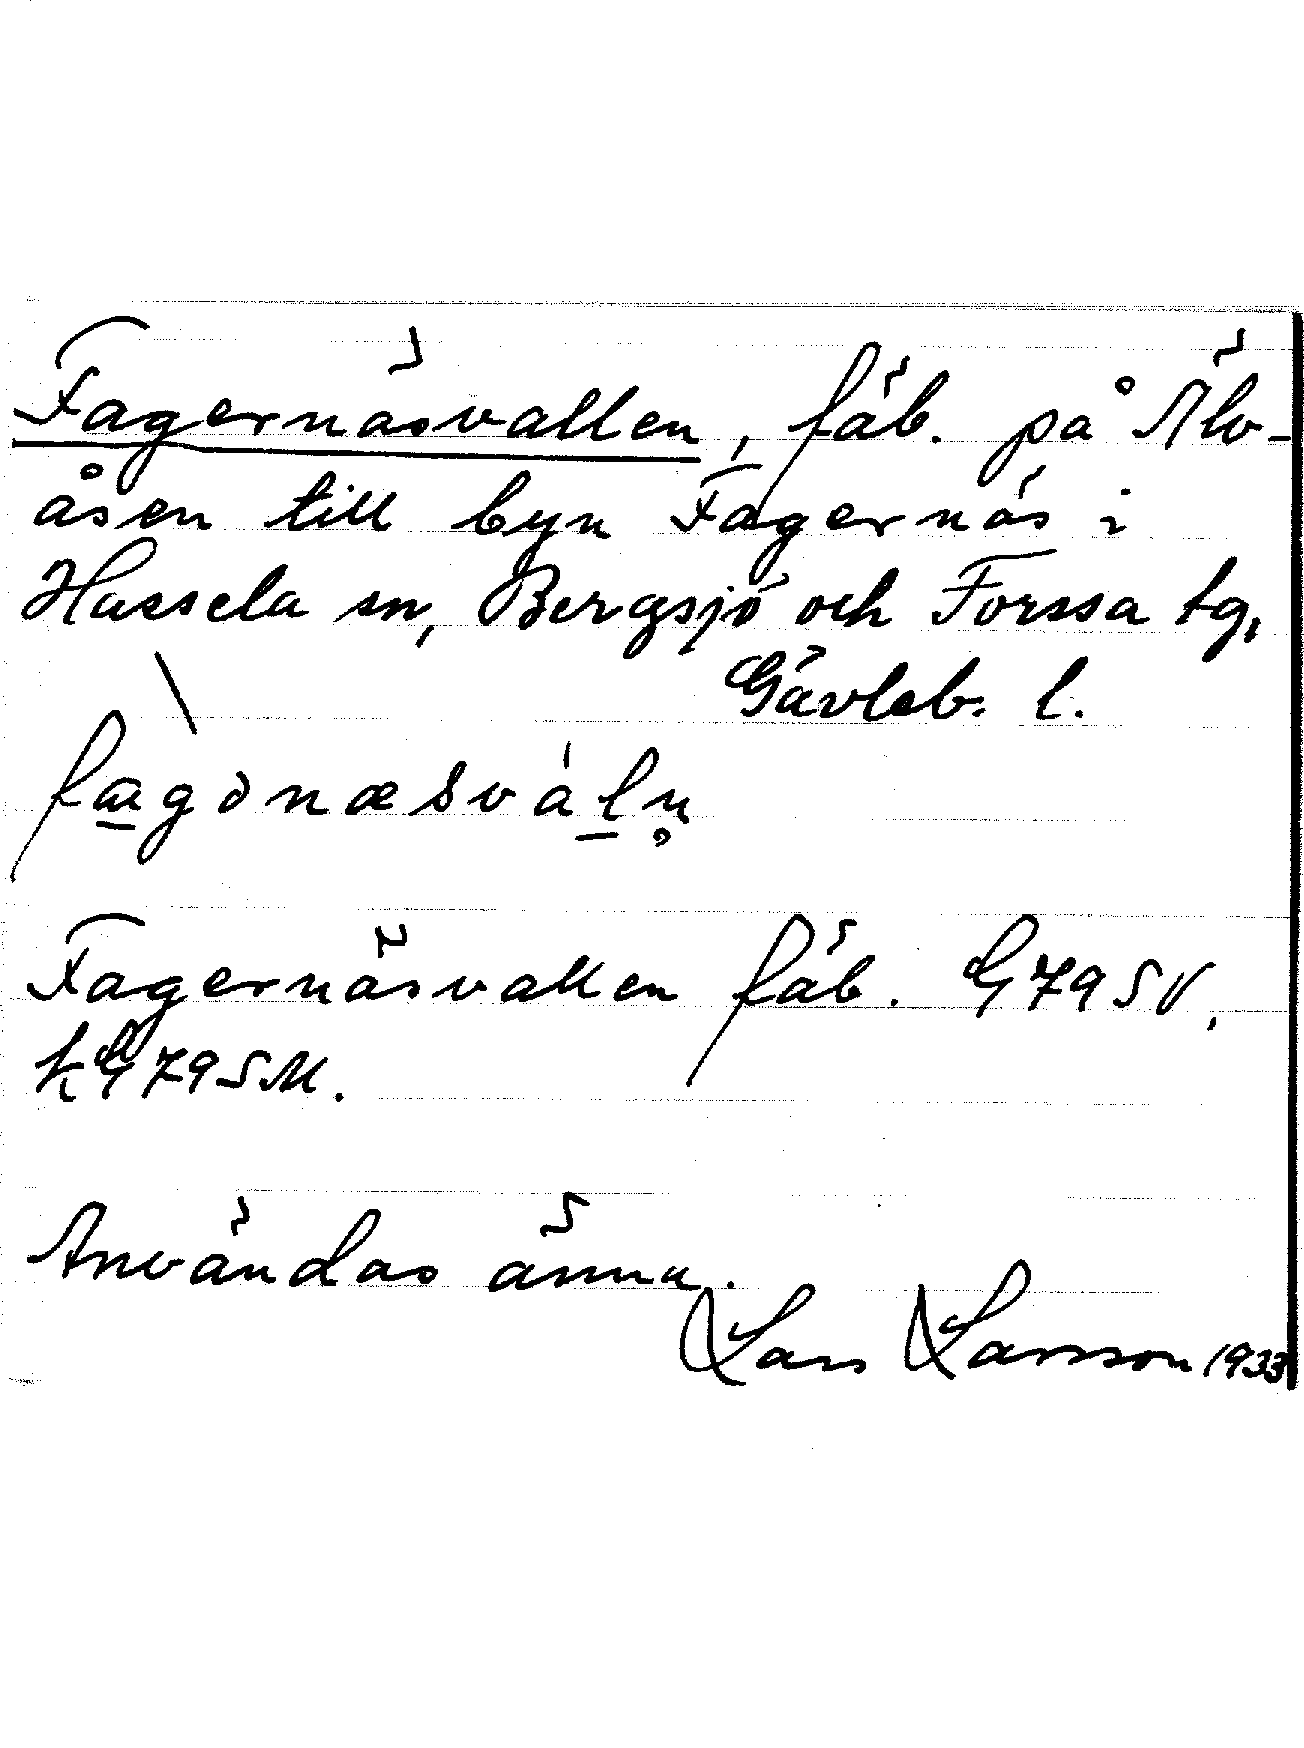 Fagernäsvallen, fäb. på Älv-
åsen till byn Fagernäs i
Hassela sn, Bergsjö och Forssa tg,
Gävleb. l.
fægənæsvàln̥
Fagernäsvallen fäb. G79SV,
kG79SM.
Användas ännu.
Lars Larsson 1933